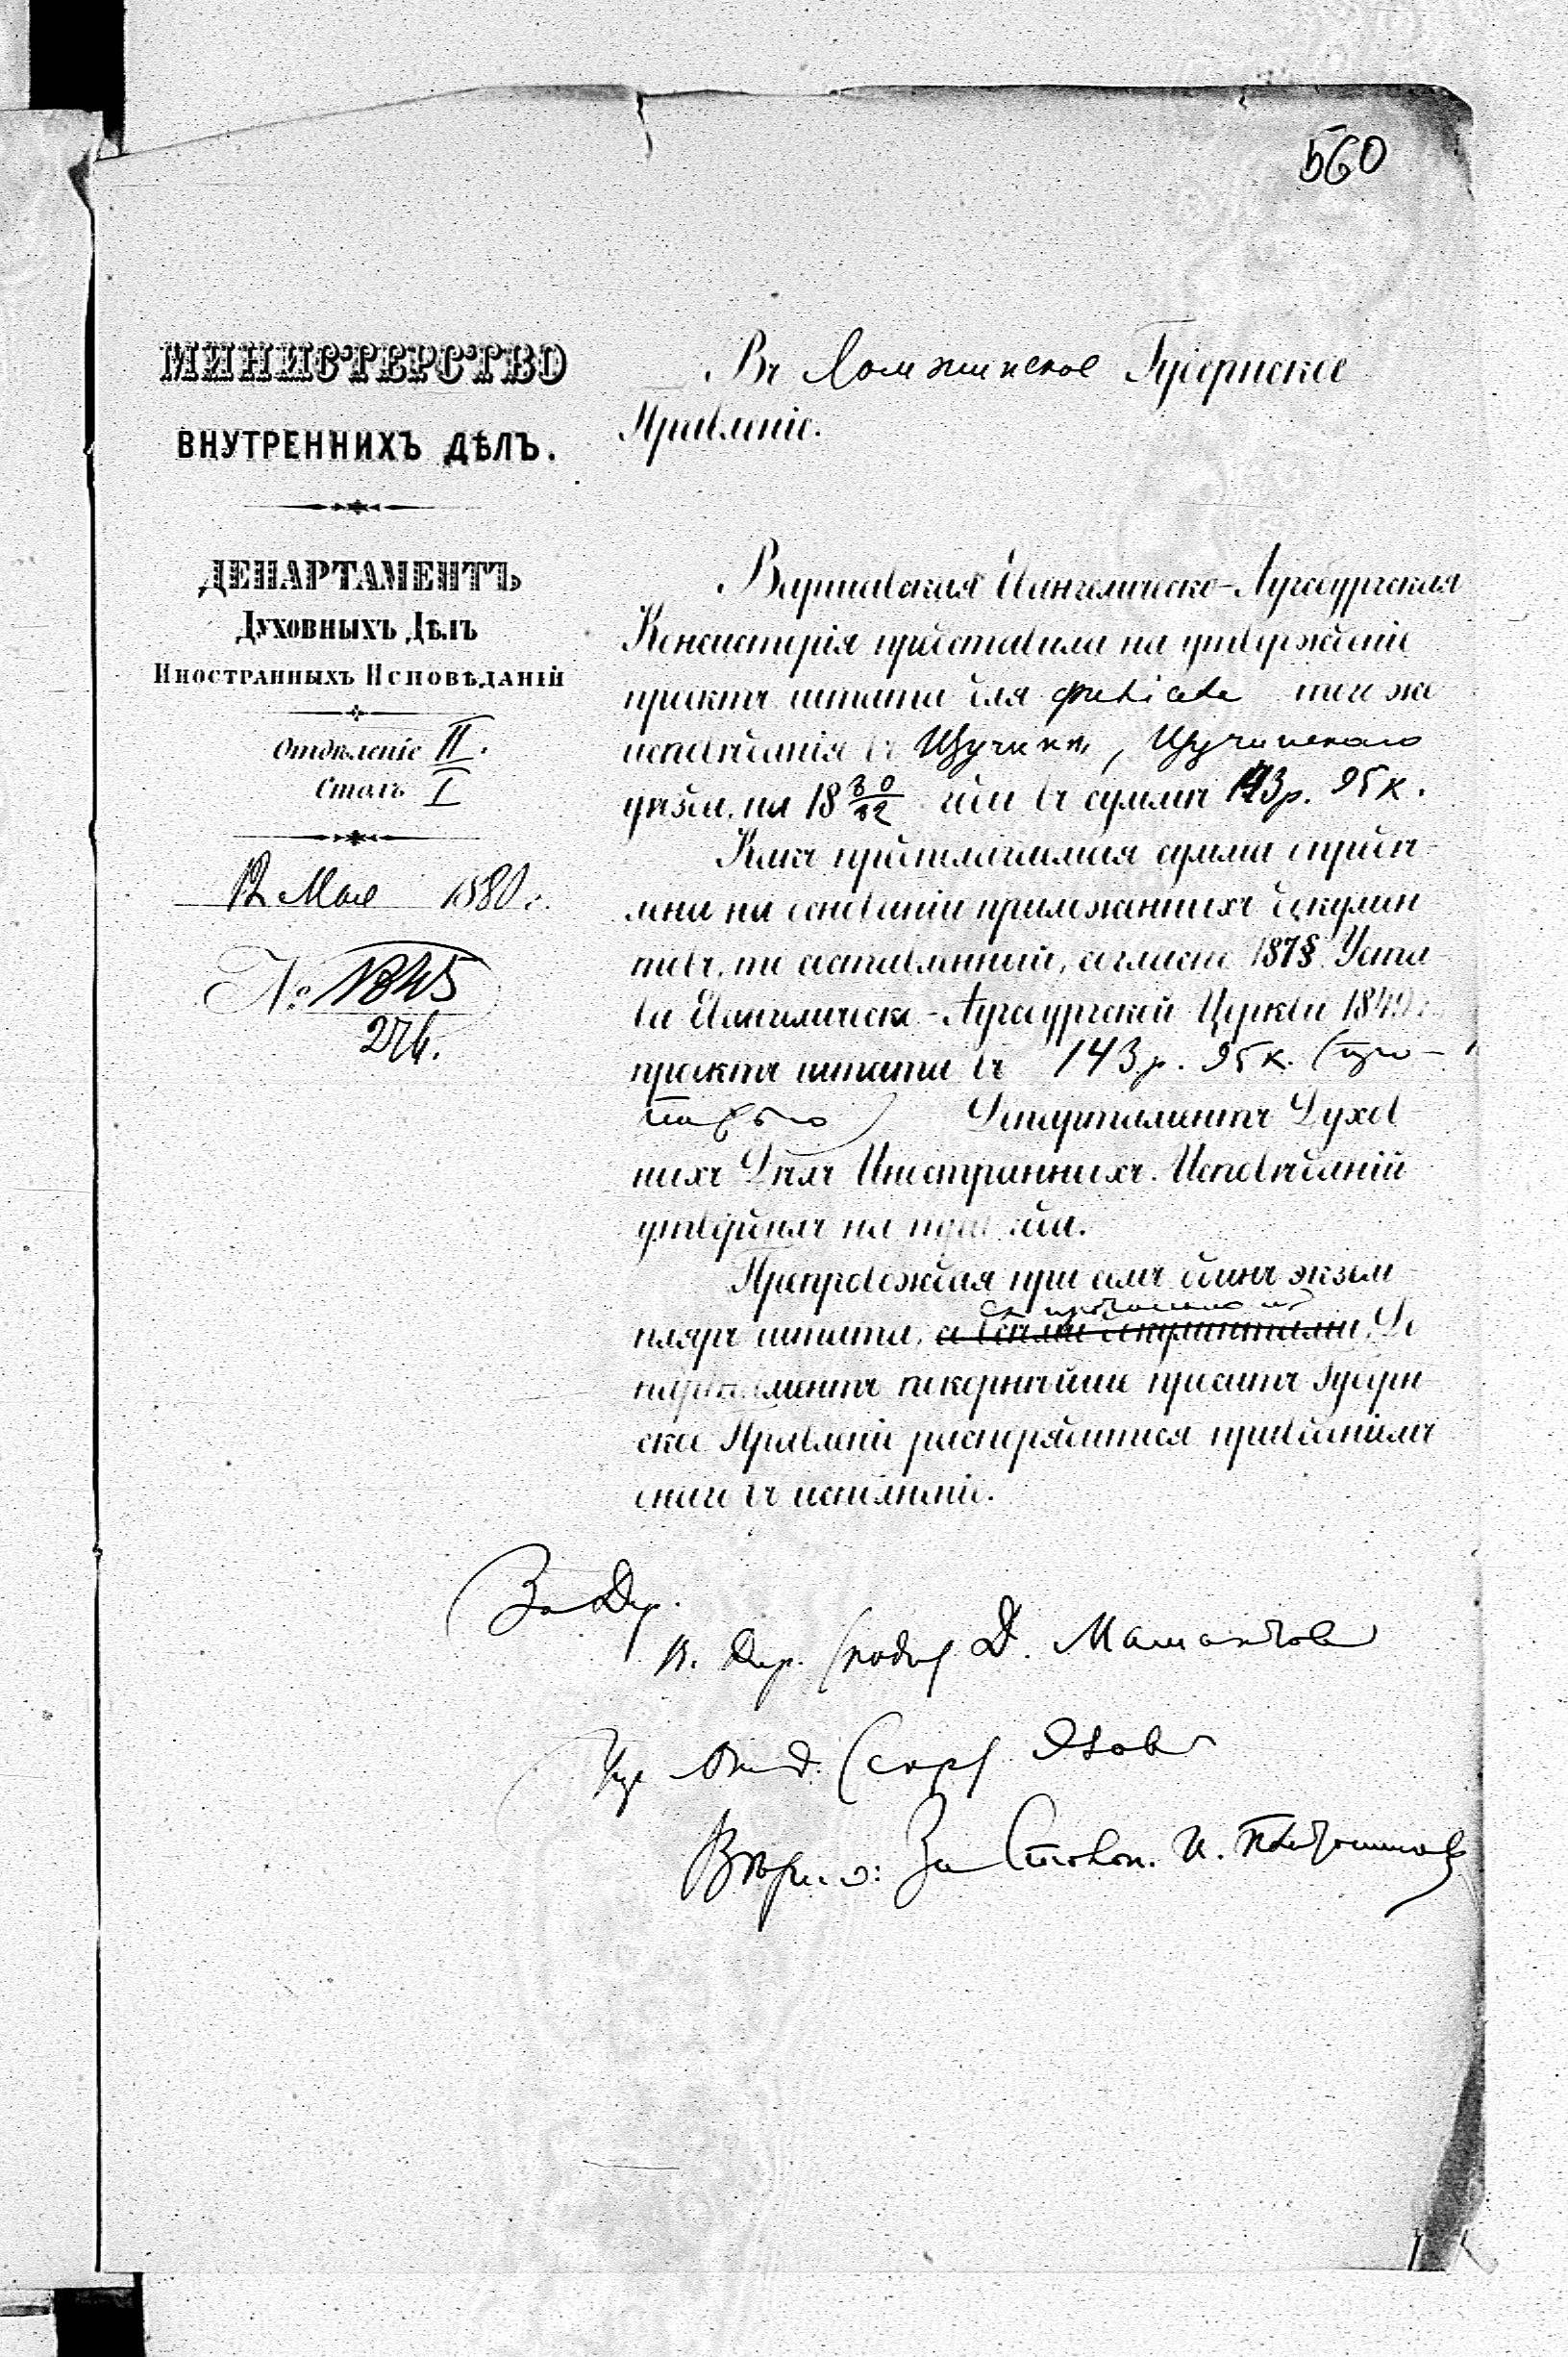 560
МИНИСТЕРСТВО
ВНУТРЕННИХЪ ДѢЛЪ.
ДЕПАРТАМЕНТЪ
Духовныхъ Дѣлъ
Иностранныхъ Исповѣданій
Отдѣленіе II.
Столъ I
12 Мая 1880 г.
№ 1345
276.
Въ Ломжинское Губернское
Правленіе.
Варшавская Евангелическо-Аугсбургская
Консисторія представила на утвержденіе
проэктъ штата для филіала той же
исповѣданія въ Щучинѣ, Щучинскаго
уѣзда, на 18 80/82 годы въ суммѣ 143 р. 95 к.
Какъ предполагаемая сумма опредѣ-
лена на основаніи приложенныхъ докумен
товъ, то составленный, согласно 187 § Уста
ва Евангелическо-Аугсбургской Церкви 1849 г.
проэктъ штата въ 143 р. 95 к.
Департаментъ Духов
ныхъ Дѣлъ Иностранныхъ Исповѣданій
утвердилъ на три года.
Препровождая при семъ одинъ экзем
пляръ штата, со всѣми документами, Де
партаментъ покорнѣйше проситъ Губерн
ское Правленіе распорядиться приведеніемъ
онаго въ исполненіе.
За Дир.
В. Дир. (подп) Д. Мамантовъ
Упр Отд. (скрѣ) Язов
Вѣрно: За Столон. И.